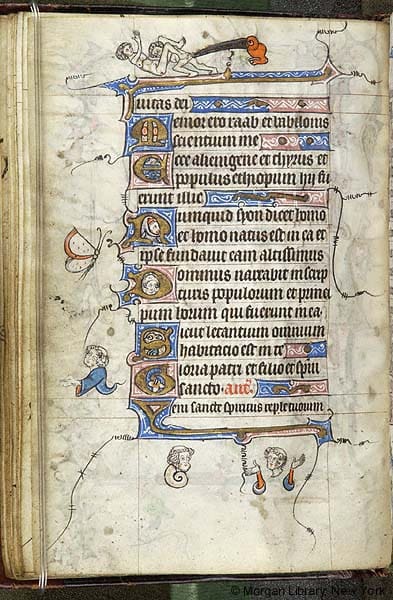 ciuitas dei
Memor ero raab et babilonis
scientium me
Ecce alienigene et thyrus et
populus ethiopum hij fu
erunt illic
Nunquid syon dicet homo
et homo natus est in ea et
ipse fundauit eam altissimus
Dominus narrabit in scrip
turis populorum et princi
pum horum qui fuerunt in ea
Sicut letantium omnium
habitatio est in te
Gloria patri et filio et spiri
sancto. Ant.
Veni sancte spiritus reple tuorum
© Morgan Library, New York